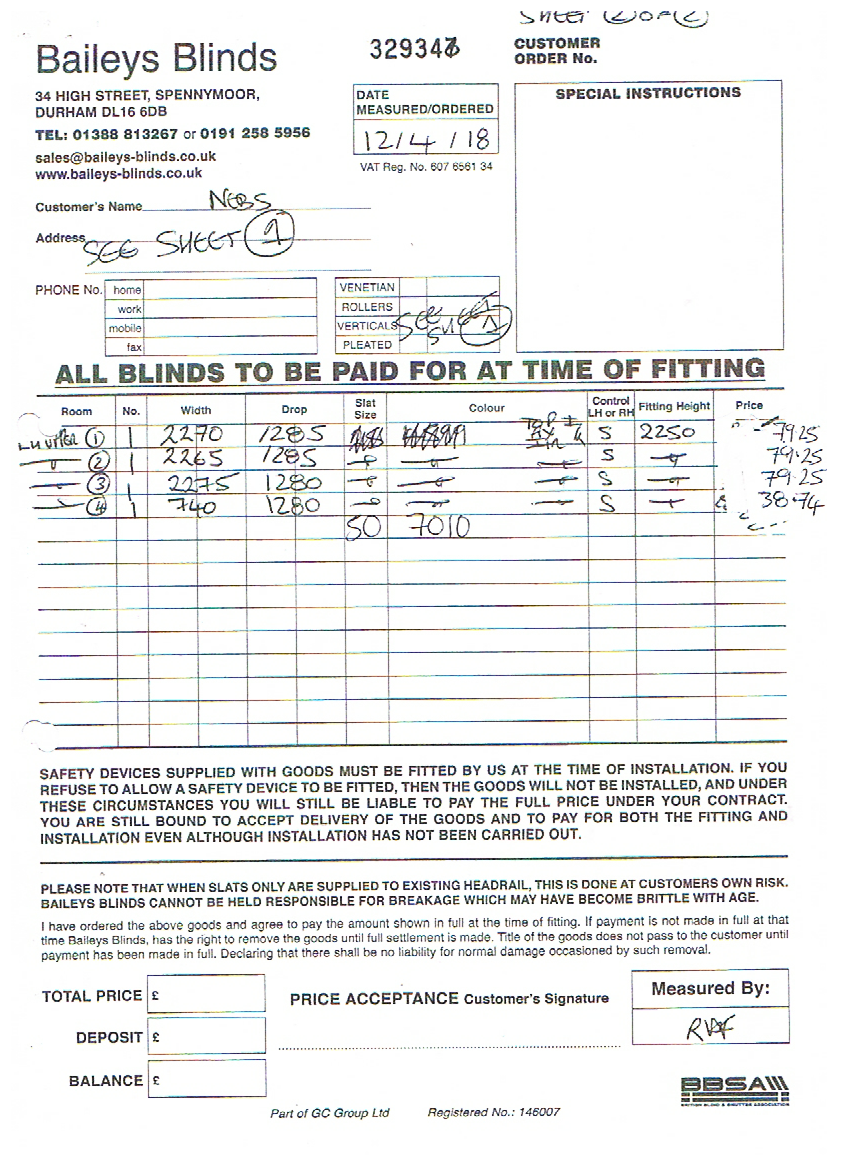 SHEET 2 OF 2
Baileys Blinds
329347
CUSTOMER
ORDER No.
34 HIGH STREET, SPENNYMOOR,
DURHAM DL16 6DB
TEL: 01388 813267 or 0191 258 5956
sales@baileys-blinds.co.uk
www.baileys-blinds.co.uk
DATE
MEASURED/ORDERED
12/4/18
VAT Reg. No. 607 6561 34
SPECIAL INSTRUCTIONS
Customer's Name NEBS
Address SEE SHEET 1
PHONE No. home
work
mobile
fax
VENETIAN
ROLLERS
VERTICALS SEE SHEET 1
PLEATED
ALL BLINDS TO BE PAID FOR AT TIME OF FITTING
Room No. Width Drop Slat Size Colour Control LH or RH Fitting Height Price
1 1 2270 1285 S 2250 79.25
2 1 2265 1285 S 79.25
3 1 2275 1280 S 79.25
4 1 740 1280 S 38.74
50 7010
SAFETY DEVICES SUPPLIED WITH GOODS MUST BE FITTED BY US AT THE TIME OF INSTALLATION. IF YOU
REFUSE TO ALLOW A SAFETY DEVICE TO BE FITTED, THEN THE GOODS WILL NOT BE INSTALLED, AND UNDER
THESE CIRCUMSTANCES YOU WILL STILL BE LIABLE TO PAY THE FULL PRICE UNDER YOUR CONTRACT.
YOU ARE STILL BOUND TO ACCEPT DELIVERY OF THE GOODS AND TO PAY FOR BOTH THE FITTING AND
INSTALLATION EVEN ALTHOUGH INSTALLATION HAS NOT BEEN CARRIED OUT.
PLEASE NOTE THAT WHEN SLATS ONLY ARE SUPPLIED TO EXISTING HEADRAIL, THIS IS DONE AT CUSTOMERS OWN RISK.
BAILEYS BLINDS CANNOT BE HELD RESPONSIBLE FOR BREAKAGE WHICH MAY HAVE BECOME BRITTLE WITH AGE.
I have ordered the above goods and agree to pay the amount shown in full at the time of fitting. If payment is not made in full at that
time Baileys Blinds, has the right to remove the goods until full settlement is made. Title of the goods does not pass to the customer until
payment has been made in full. Declaring that there shall be no liability for normal damage occasioned by such removal.
TOTAL PRICE £
DEPOSIT £
BALANCE £
PRICE ACCEPTANCE Customer's Signature
Measured By:
BBSA
BRITISH BLIND & SHUTTER ASSOCIATION
Part of GC Group Ltd Registered No.: 146007